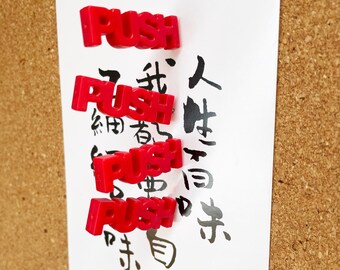 PUSH
PUSH
PUSH
PUSH
人生百味
我都要自
細細味